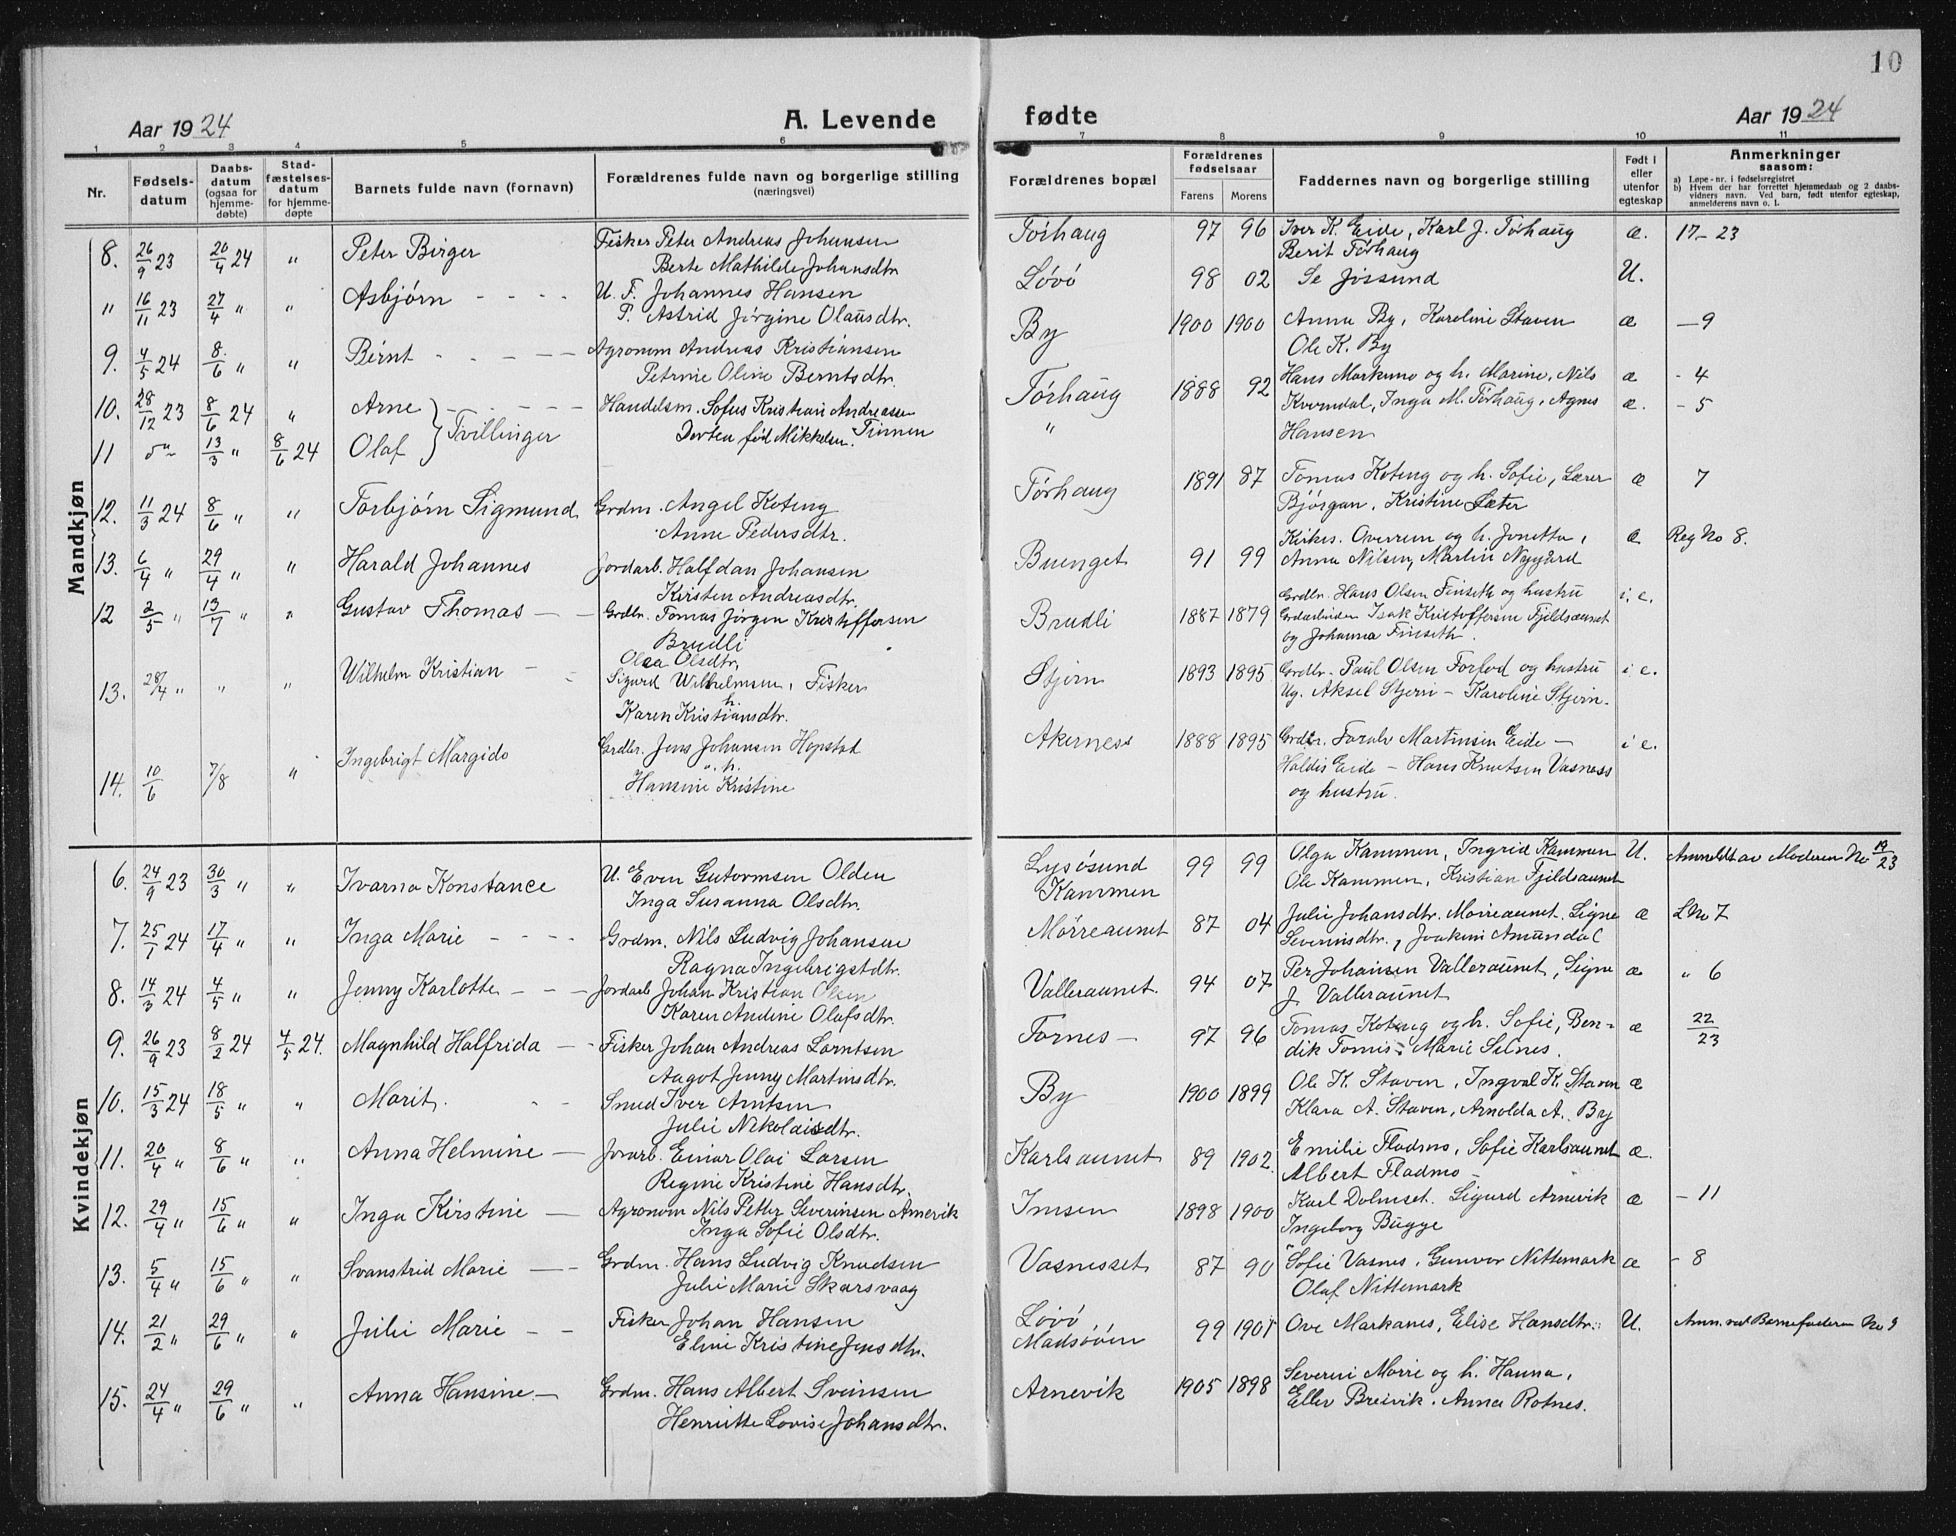 10
Aar 1924 A. Levende fødte Aar 1924
1 2 3 4 5 6 7 8 9 10 11
Nr. Fødsels-datum Daabs-datum (ogsaa for hjemme-døbte) Stad-fæstelses-datum for hjemme-døpte Barnets fulde navn (fornavn) Forældrenes fulde navn og borgerlige stilling (næringsvei) Forældrenes bopæl Forældrenes fødselsaar Farens Morens Faddernes navn og borgerlige stilling Født i eller utenfor egteskap Anmerkninger saasom:
a) Løpe-nr. i fødselsregistret
b) Hvem der har forrettet hjemmedaab og 2 daabs-vidners navn. Ved barn, født utenfor egteskap, anmelderens navn o. l.
Mandkjøn
8. 26/9 23 20/4 24 " Peter Birger Fisker Peter Andreas Johansen Tørhaug 97 96 Iver K. Eide, Karl J. Tørhaug æ. 17-23
Berte Mathilde Johansdtr Berit Tørhaug
" 16/11 23 27/4 " " Asbjørn - - - - U. F. Johannes Hansen Løvö 98 02 Se Jøssund U.
P. Astrid Jørgine Olausdtr.
9. 4/5 24 8/6 " " Bernt - - - - Agronom Andreas Kristiansen By 1900 1900 Anna By, Karoline Staven æ - 9
Petrine Oline Berntsdtr. Ole K. By
10. 28/12 23 8/6 24 " Arne } Tvillinger Handelsm. Sofus Kristian Andreassen Tørhaug 1888 92 Hans Markmo og h. Marine, Nils æ - 4
11 do 13/3 " 8/6 24 Olaf Dorten fød Mikkelsen. " Kverndal, Inga M. Tørhaug, Agnes æ. - 5
Hansen
12. 11/3 24 8/6 " " Torbjørn Sigmund Grdm. Angel Koteng Tørhaug 1891 87 Tomas Koteng og h. Sofie, Lærer æ 7
Anne Pedersdtr. Bjørgan, Kristine Sæter
13. 6/4 " 29/4 " " Harald Johannes Jordarb. Halfdan Johansen Buenget 91 99 Kirkes. Overrein og h. Jonetta, æ Reg No 8.
Kirsten Andreasdtr. Anna Nilsen, Martin Nygård
12 2/5 " 13/7 " Gustav Thomas - - Grdbr. Tomas Jørgen Kristiffersen Brudli 1887 1879 Grdbr. Hans Olsen Finseth og hustru i. e.
Brudli Grdarbeider Isak Kristoffersen Fjeldsaunet
Olea Olsdtr, og Johanna Finseth.
13. 28/4 " " " Wilhelm Kristian - Sigurd Wilhelmsen, Fisker Stjern 1893 1895 Grdbr. Paul Olsen Forfod og hustru i e.
h. Karen Kristiansdtr. Ug. Aksel Stjern - Karoline Stjern.
14. 10/6 7/8 " Ingebrigt Margido Grdbr. Jens Johansen Hopstad Akerness 1888 1895 Grdbr. Martinsen Eide - i e.
" h. Haldis Eide - Hans Knutsen Vasness
Hansine Kristine og hustru.
Kvindekjøn
6. 24/9 23 30/3 " " Ivarna Konstance U. Even Gutormsen Olden Lysøsund 99 99 Olga Kammen, Ingrid Kammen U. Anmeldt av Moderen No 19/23
Inga Susanna Olsdtr. Kammen Ole Kammen, Kristian Fjeldsaunet
7. 25/1 24 17/4 " " Inga Marie - - - - Grdm. Nils Ludvig Johansen Mørreaunet 87 04 Julie Johansdtr. Mørreaunet. Signe æ L No 7
Ragna Ingebrigstdtr. Severinsdtr., Joakim Amundal
8. 14/3 24 4/5 " " Jenny Karlotte - - - Jordarb Johan Kristian Olsen Valleraunet. 94 07 Per Johansen Valleraunet, Signe æ " 6
Karen Andine Olafsdtr. J. Valleraunet
9. 26/9 23 8/2 24 4/5 24. Magnhild Halfrida - - Fisker Johan Andreas Lorntsen Tornes - 97 96 Tomas Koteng og h. Sofie, Ben- æ 22/23
Aagot Jenny Martinsdtr. dik Tornis - Marie Selnes.
10. 15/3 24 18/5 " " Marit. - - Smed Iver Arntsen By 1900 1899 Ole K. Staven, Ingval K. Staven æ
Julie Nikolaisdtr. Klara A. Staven, Arnolda A. By
11. 20/4 " 8/6 " " Anna Helmine - Jorarb. Einar Olai Larsen Karlsaunet 89 1902. Emilie Fladmo, Sofie Karlsaunet æ.
Regine Kristine Hansdtr. Albert Fladmo -
12. 29/4 " 15/6 " " Inga Kirstine - Agronom Nils Petter Severinsen Arnevik Imsen 1898 1900 Karl Dolmset. Sigurd Arnevik æ - 11
Inga Sofie Olsdtr. Ingeborg Bugge
13. 5/4 " 15/6 " " Svanstrid Marie - - Grdm. Hans Ludvig Knudsen Vasnesset 87 90 Sofie Vasnes, Gunvor Nittemark æ - 8
Julie Marie Skarsvaag Olaf Nittemark
14. 21/2 " 29/6 " " Julie Marie - - Fisker Johan Hansen Løvö 99 1901 Ove Markanes, Elise Hansdtr. U. Anm. ved Barnefaderen No 9
Eline Kristine Jensdtr. Madsøöen
15. 24/4 " 29/6 " " Anna Hansine - Grdm. Hans Albert Svensen Arnevik 1905 1898 Severin Mørre og h. Hanna,
Henriette Lovise Johansdtr. Ellev Breivik. Anna Rotnes.